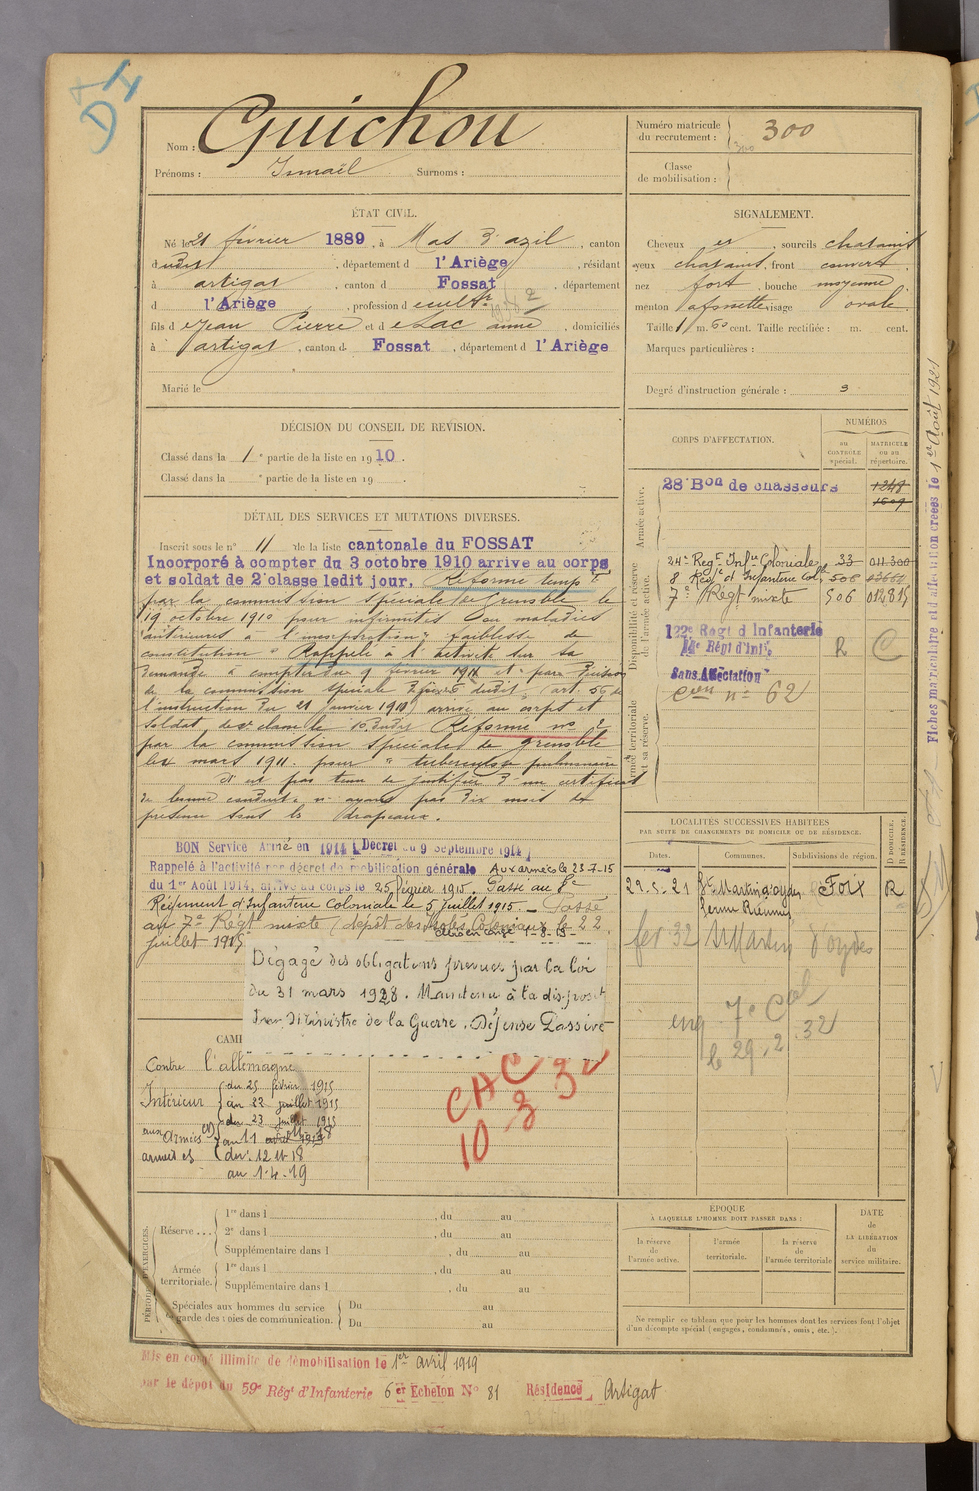 Nom : Guichou
Prénoms : Ismaël Surnoms :
Numéro matricule du recrutement : 300
Classe de mobilisation :
ÉTAT CIVIL.
Né le 21 février 1889, à Mas d'azil, canton
dudit, département d l'Ariège, résidant
à artigat, canton d Fossat, département
d l'Ariège, profession de cult
fils de Jean Pierre et de Lac anne, domiciliés
à artigat, canton d. Fossat, département d l'Ariège
Marié le
SIGNALEMENT.
Cheveux et, sourcils chatains
yeux chatains, front couvert
nez fort, bouche moyenne
menton à fossette visage ovale
Taille 1 m. 60 cent. Taille rectifiée : m. cent.
Marques particulières :
Degré d'instruction générale : 3
DÉCISION DU CONSEIL DE REVISION.
Classé dans la 1e partie de la liste en 1910.
Classé dans la e partie de la liste en 19
DÉTAIL DES SERVICES ET MUTATIONS DIVERSES.
Inscrit sous le n° 11 de la liste cantonale du FOSSAT
Incorporé à compter du 3 octobre 1910 arrive au corps
et soldat de 2e classe ledit jour. Réformé temp
par la commission spéciale de Grenoble le
19 octobre 1910 pour infirmités ou maladies
antérieures à l'incorporation " faiblesse de
constitution " Rappelé à l'activité sur sa
demande à compter du 9 février 1911 et par décision
de la commission spéciale dudit (art. 56 de
l'instruction du 21 janvier 1910) arrivé au corps et
soldat de 2e classe le dudit Réformé no 2
par la commission spéciale de Grenoble
le mars 1911. pour " tuberculose pulmonaire
Il est pas tenu de justifier d'un certificat
de bonne conduite n'ayant pas dix mois de
présence sous les drapeaux.
BON Service Armé en 1914 (Decret du 9 Septembre 1914)
Rappelé à l'activité par décret de mobilisation générale Aux armées le 23-7-15
du 1er Août 1914, arrivé au corps le 25 février 1915. Passé au 8e
Régiment d'Infanterie Coloniale le 5 juillet 1915. Passé
au 7e Régt mixte (dépôt des Isolés Coloniaux le 22
juillet 1915
Dégagé des obligations prévues par la loi
du 31 mars 1928. Maintenu à la disposit
Ministre de la Guerre. Défense Passive
CAM
Contre l'allemagne
Intérieur du 25 février 1915
au 22 juillet 1915
aux Armées du 23 juillet 1915
au 11 11 18
armées du 12 11 18
au 1-4-19
CAC
10 3 32
CORPS D'AFFECTATION.
NUMÉROS
au CONTRÔLE spécial.
MATRICULE ou au répertoire.
Armée active.
28e Bon de chasseurs 1248
1609
Disponibilité et réserve de l'armée active.
24e Regt Infie Coloniales 33 011.300
8 Regt d'Infanterie Col 506
7e Régt mixte 506 012815
122e Regt d'Infanterie
14e Régt d'Infie R C
Sans Affectation
con n° 62
Armée territoriale et sa réserve.
Fiches matriculaire et d'affectation créées le 1er Août 1921
LOCALITÉS SUCCESSIVES HABITÉES
PAR SUITE DE CHANGEMENTS DE DOMICILE OU DE RÉSIDENCE.
Dates. Communes. Subdivisions de région. D DOMICILE. R RÉSIDENCE.
22-5-21 St Martin d'oydes Foix R
fev 32 St Martin d'Oydes
eng 7e Cal
le 29.2.32
PÉRIODES D'EXERCICES.
Réserve... 1re dans l , du au
2e dans l , du au
Supplémentaire dans l , du au
Armée territoriale. 1re dans l , du au
Supplémentaire dans l , du au
Spéciales aux hommes du service de garde des voies de communication. Du au
Du au
ÉPOQUE
À LAQUELLE L'HOMME DOIT PASSER DANS :
la réserve de l'armée active.
l'armée territoriale.
la réserve de l'armée territoriale
DATE de LA LIBÉRATION du service militaire.
Ne remplir ce tableau que pour les hommes dont les services font l'objet
d'un décompte spécial (engagés, condamnés, omis, etc.).
Mis en congé illimité de démobilisation le 1er avril 1919
par le dépôt du 59e Régt d'Infanterie 6e Echelon N° 81 Résidence Artigat